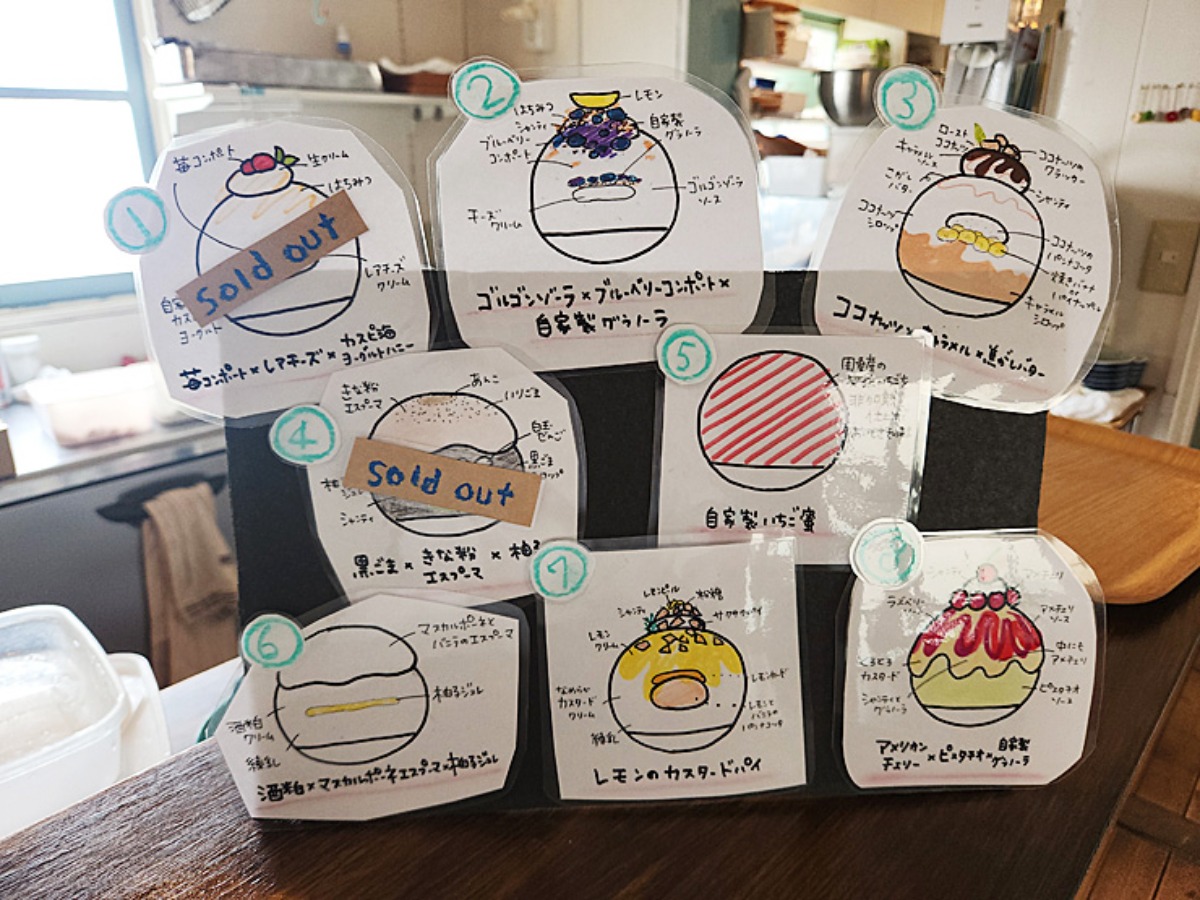 ①
苺コンポート
生クリーム
はちみつ
レアチーズ
クリーム
ヨーグルト
sold out
苺コンポート×レアチーズ×カスピ海
ヨーグルトハニー
②
レモン
はちみつ
シャンティ
ブルーベリー
コンポート
自家製
グラノーラ
ゴルゴンゾーラ
ソース
チーズ
クリーム
ゴルゴンゾーラ×ブルーベリーコンポート×
自家製グラノーラ
③
ロースト
ココナッツ
キャラメル
ソース
こがし
バター
ココナッツ
シロップ
ココナッツの
クラッカー
シャンティ
ココナッツの
パンナコッタ
焼きバナナ
or
パイナップル
キャラメル
シロップ
ココナッツ×キャラメル×焦がしバター
④
きな粉
エスプーマ
あんこ
いりごま
白玉
だんご
黒ごま
シャンティ
sold out
黒ごま×きな粉
エスプーマ
×柚子
⑤
国産の
自家製いちご蜜
⑥
マスカルポーネと
バニラのエスプーマ
柚子ジュレ
酒粕
クリーム
練乳
酒粕×マスカルポーネエスプーマ×柚子ジュレ
⑦
レモンピール
粉糖
シャンティ
サクサクパイ
レモン
クリーム
レモンカード
なめらか
カスタード
クリーム
レモンと
バニラの
パンナコッタ
練乳
レモンのカスタードパイ
シャンティ
アメチェリ
ラズベリー
アメチェリ
ソース
中にも
アメチェリ
とろとろ
カスタード
ピスタチオ
ソース
シャンティと
グラノーラ
アメリカン
チェリー×ピスタチオ×自家製
グラノーラ